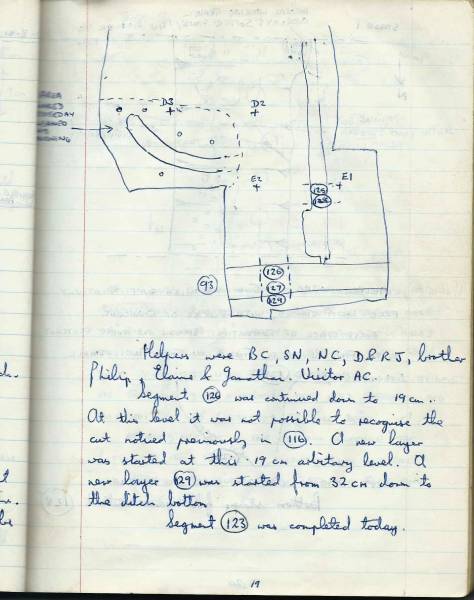 AREA
D3
D2
E2
E1
125
128
126
127
129
93
Helpers were BC, SN, NC, D & R J, brother
Philip, Elaine & Jonathan. Visitor AC.
Segment 126 was continued down to 19 cm.
At this level it was not possible to recognise the
cut noticed previously in 116. A new layer
was started at this 19 cm arbitary level. A
new layer 129 was started from 32 cm down to
the ditch bottom
Segment 123 was completed today.
19